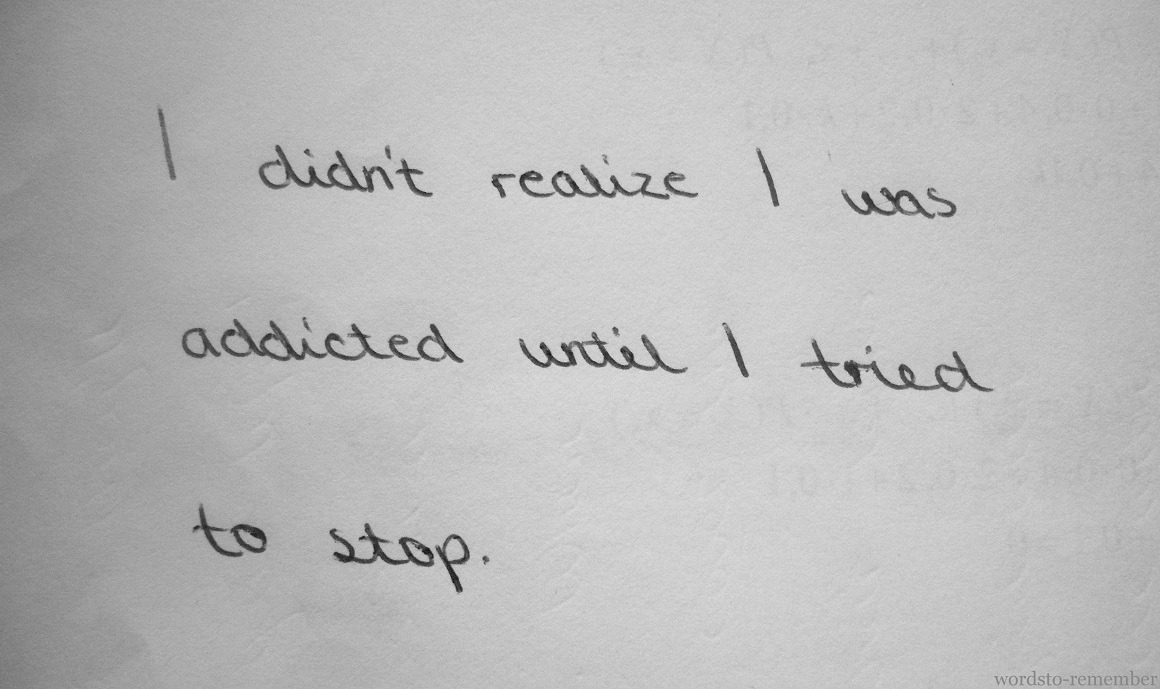 I didn't realize I was
addicted until I tried
to stop.
wordsto-remember